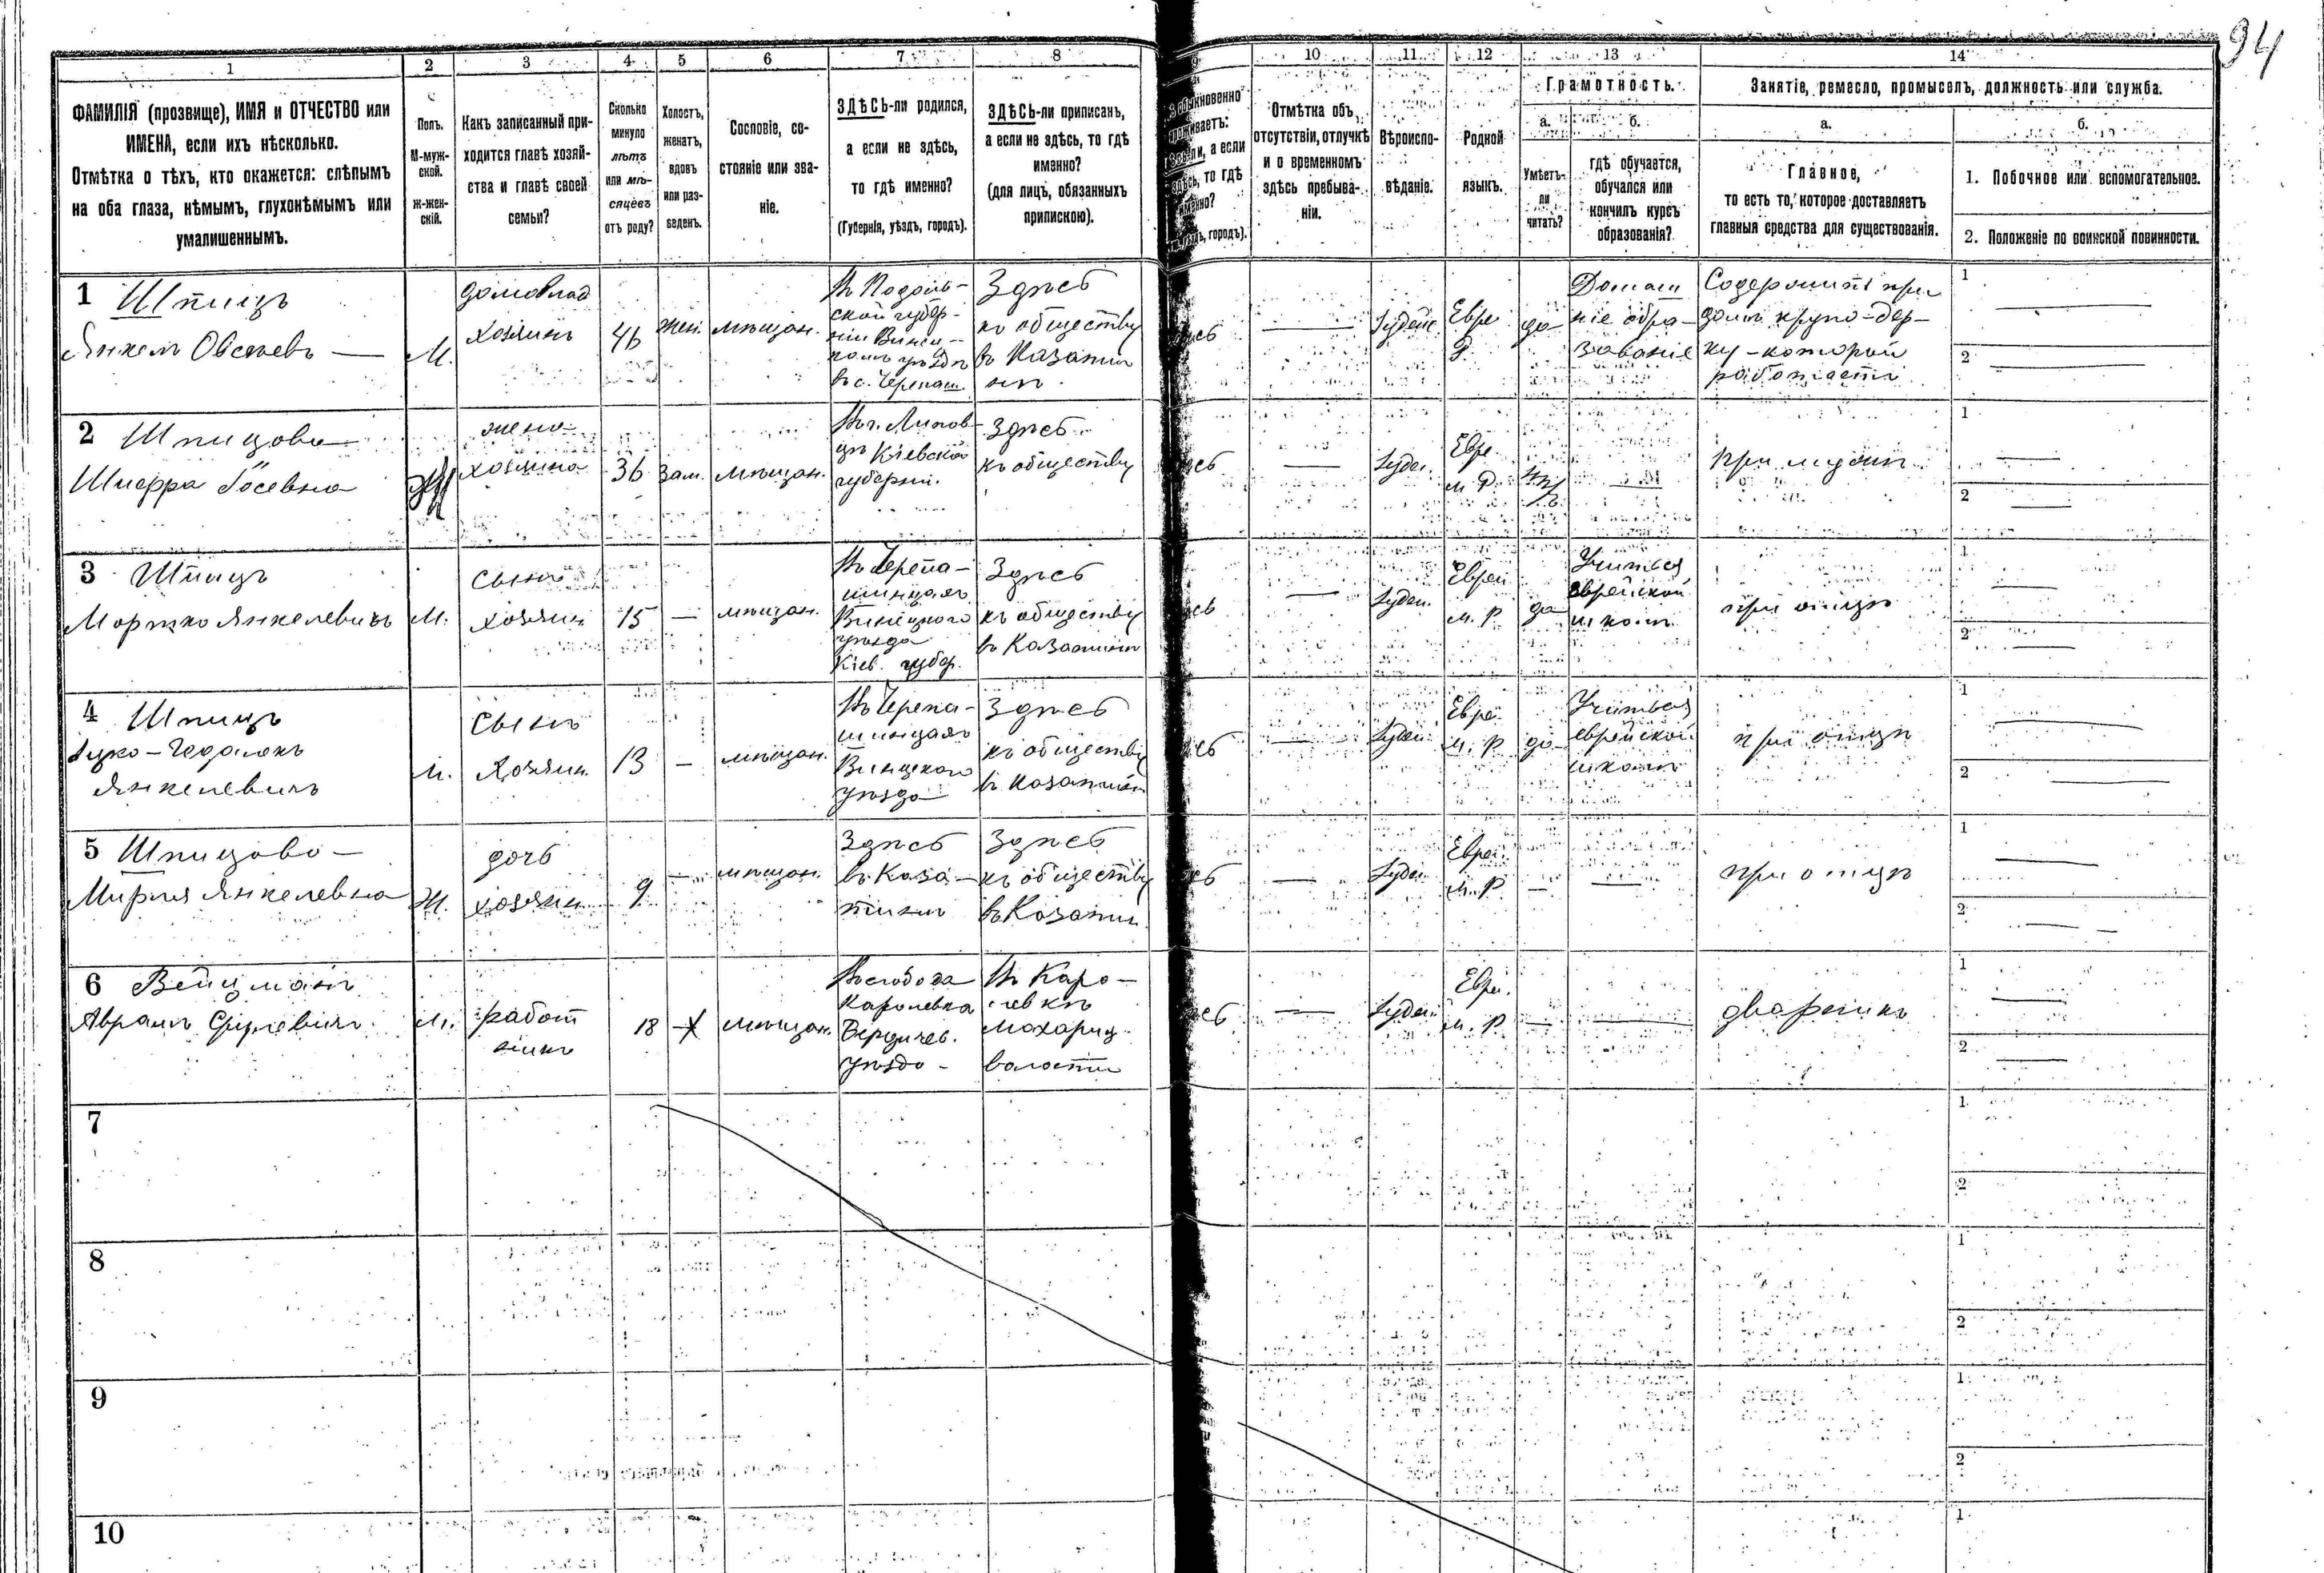 94
1
2
3
4
5
6
7
8
10
11
12
13
14
ФАМИЛІЯ (прозвище), ИМЯ и ОТЧЕСТВО или
ИМЕНА, если ихъ нѣсколько.
Отмѣтка о тѣхъ, кто окажется: слѣпымъ
на оба глаза, нѣмымъ, глухонѣмымъ или
умалишеннымъ.
Полъ.
М-муж-
ской.
Ж-жен-
скій.
Какъ записанный при-
ходится главѣ хозяй-
ства и главѣ своей
семьи?
Сколько
минуло
лѣтъ
или мѣ-
сяцевъ
отъ роду?
Холостъ,
женатъ,
вдовъ
или раз-
веденъ.
Сословіе, со-
стояніе или зва-
ніе.
ЗДѢСЬ-ли родился,
а если не здѣсь,
то гдѣ именно?
(Губернія, уѣздъ, городъ).
ЗДѢСЬ-ли приписанъ,
а если не здѣсь, то гдѣ
именно?
(для лицъ, обязанныхъ
припискою).
а если
то гдѣ
городъ).
Отмѣтка объ
отсутствіи, отлучкѣ
и о временномъ
здѣсь пребыва-
ніи.
Вѣроиспо-
вѣданіе.
Родной
языкъ.
Грамотность.
а.
б.
Умѣетъ-
ли
читать?
гдѣ обучается,
обучался или
кончилъ курсъ
образованія?
Занятіе, ремесло, промыселъ, должность или служба.
а.
Главное,
то есть то, которое доставляетъ
главныя средства для существованія.
б.
1. Побочное или вспомогательное.
2. Положеніе по воинской повинности.
1 Шпицъ
Янкель Овсеевъ —
М.
домовлад
хозяинъ
46
жен.
мѣщан.
въ Подоль-
ской губер-
ніи
въ с. Черепаш.
Здѣсь
къ обществу
въ Казатин
нѣ.
—
Іудейс.
Евре
да
Домаш
ніе обра-
зованіе
Содержитъ при
домѣ крупо-дер-
ку - которой
работаетъ
1 —
2 —
2 Шпицова
Шифра Іосевна
Ж
жена
хозяина
36
зам.
мѣщан.
въ г. Липов-
цѣ Кіевской
губерніи.
Здѣсь
къ обществу
—
Іудей.
Евре
—
при мужѣ
1 —
2 —
3 Шпицъ
Мошко Янкелевичъ
М.
сынъ
хозяин
15
—
мѣщан.
въ Черепа-
шинцахъ
Винецкого
уѣзда
Кіев. губер.
Здѣсь
къ обществу
въ Казатинѣ
—
Іудей.
Еврей
да
Учится
еврейской
школѣ
при отцѣ
1 —
2 —
4 Шпицъ
Янкелевичъ
М.
сынъ
Хозяин.
13
—
мѣщан.
въ Черепа-
шинцахъ
Винецкого
уѣзда
Здѣсь
къ обществу
въ Казатинѣ
—
Іудей.
Евре.
да
Учится
еврейской
школѣ
при отцѣ
1 —
2 —
5 Шпицова —
Мирля Янкелевна
Ж.
дочь
хозяин
9
—
мѣщан.
Здѣсь
въ Каза-
тинѣ
Здѣсь
къ обществу
въ Казатин
—
Іудей.
Еврей.
—
—
при отцѣ
1 —
2 —
6 Вейцманъ
Авраамъ
М.
работ
никъ
18
Х
мѣщан.
Каролевка
Бердичев.
уѣзда -
въ Каро-
левкѣ
Махарин.
волости
—
Іудей.
Еврей.
—
—
дворникъ
1 —
2 —
7
1
2
8
1
2
9
1
2
10
1